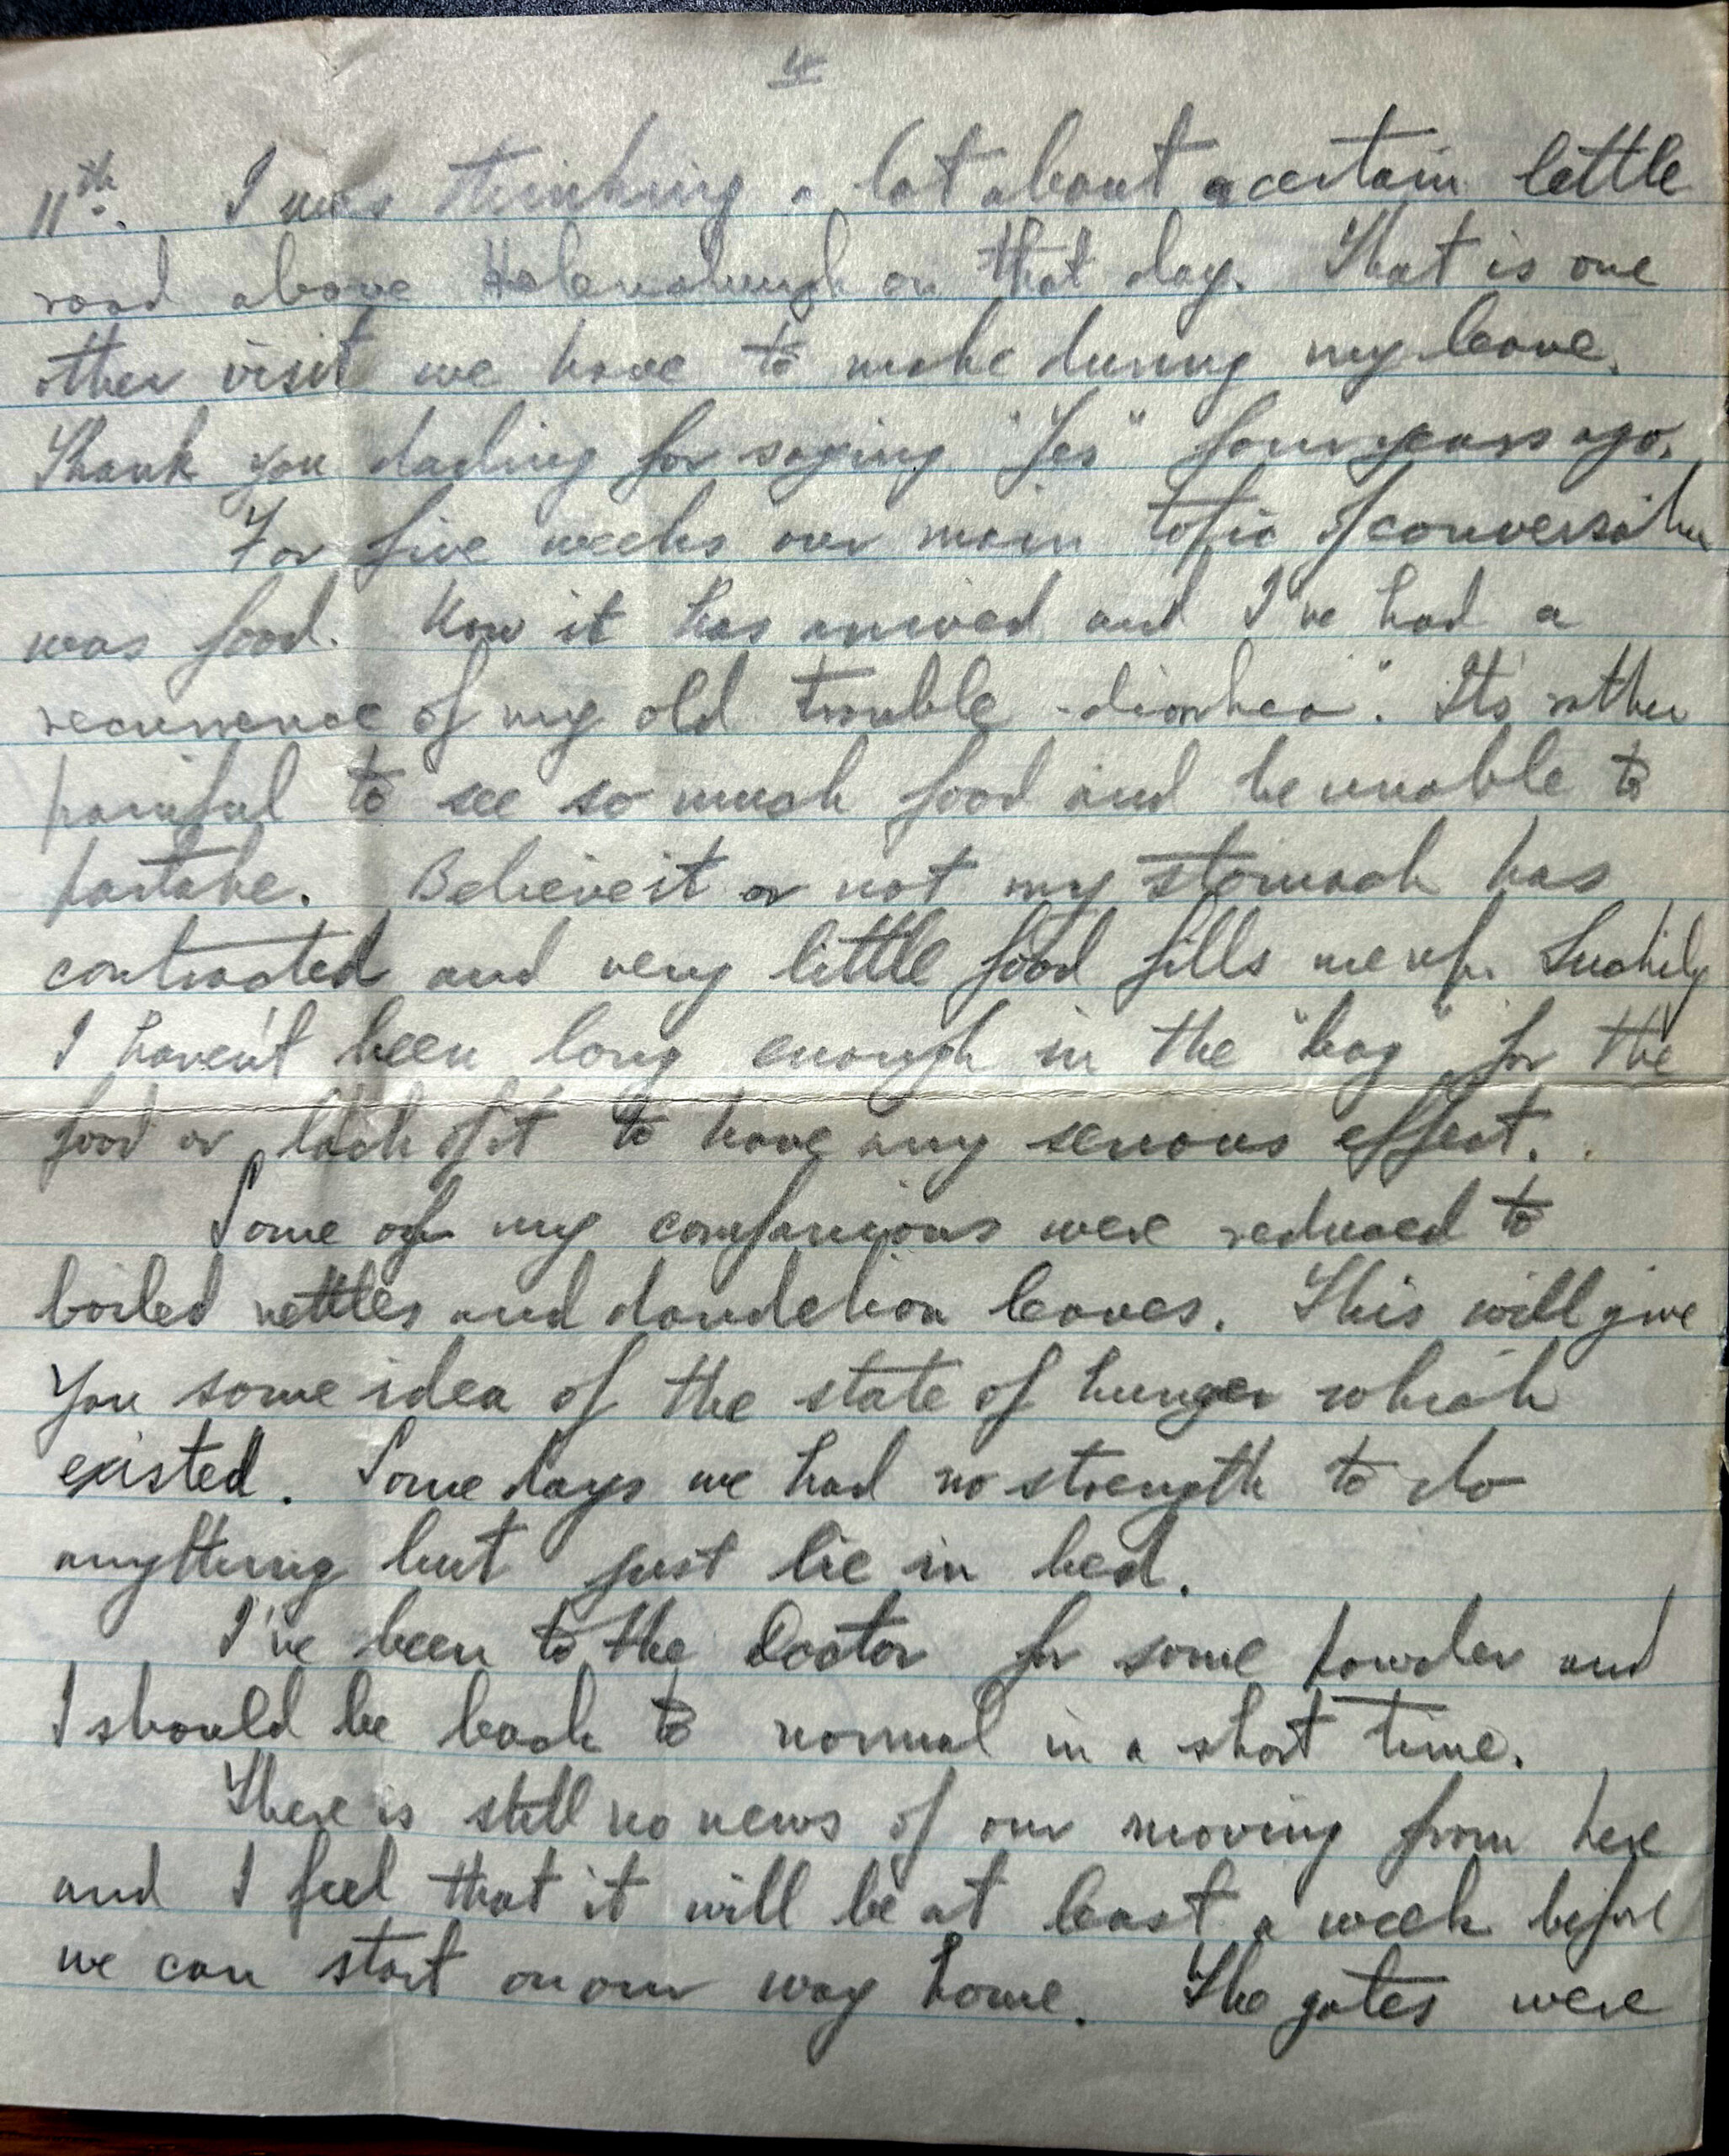 4
11th. I was thinking a lot about a certain little
road above Helensburgh on that day. That is one
other visit we have to make during my leave.
Thank you darling for saying "Yes" four years ago.
For five weeks our main topic of conversation
was food. Now it has arrived and I've had a
recurrence of my old trouble "diorhea". Its rather
painful to see so much food and be unable to
partake. Believe it or not my stomach has
contracted and very little food fills me up. Luckily
I haven't been long enough in the "bag" for the
food or lack of it to have any serious effect.
Some of my companions were reduced to
boiled nettles and dandelion leaves. This will give
you some idea of the state of hunger which
existed. Some days we had no strength to do
anything but just lie in bed.
I've been to the Doctor for some powder and
I should be back to normal in a short time.
There is still no news of our moving from here
and I feel that it will be at least a week before
we can start on our way home. The gates were